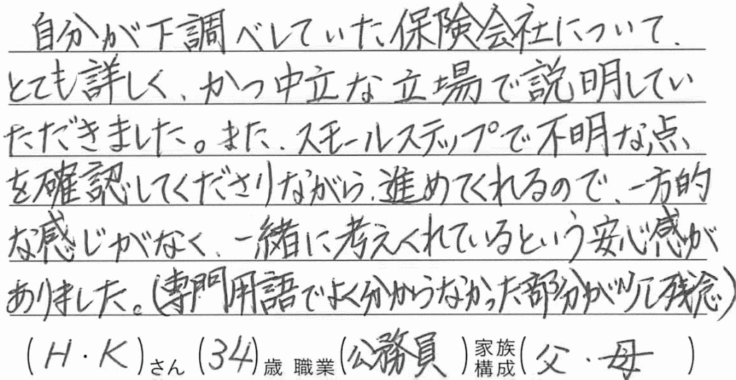 自分が下調べしていた保険会社について、
とても詳しく、かつ中立な立場で説明してい
ただきました。また、スモールステップで不明な点
を確認してくださりながら、進めてくれるので、一方的
な感じがなく、一緒に考えてくれているという安心感が
ありました。(専門用語でよく分からなかった部分が少し残念)
(H・K)さん (34)歳 職業(公務員)家族構成(父・母)